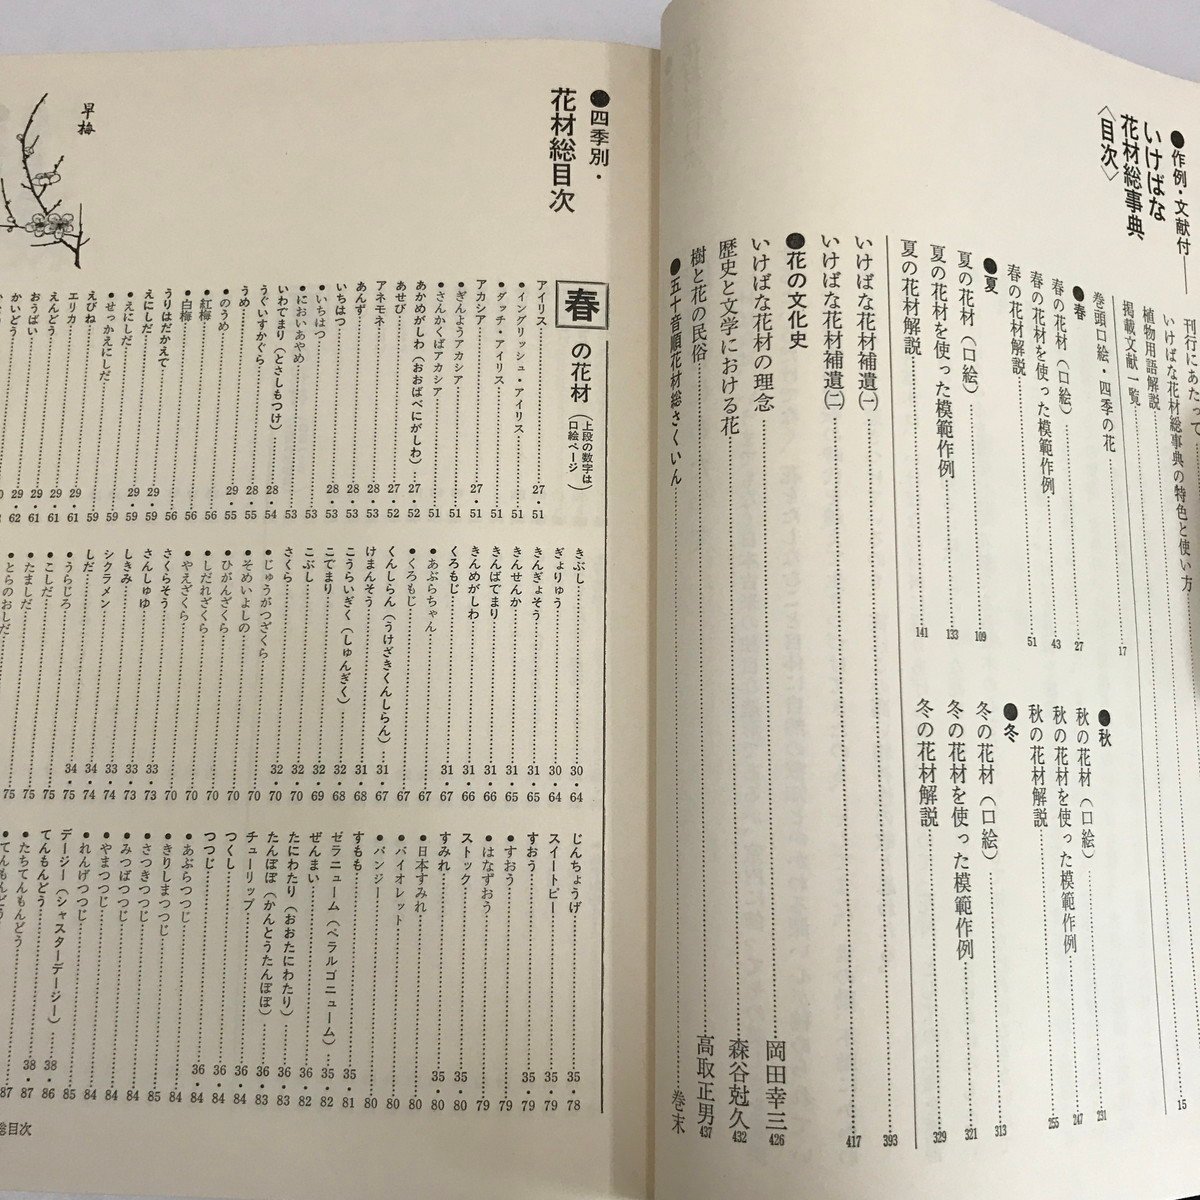 ●作例・文献付――
いけばな
花材総事典
〈目次〉
刊行にあたって
いけばな花材総事典の特色と使い方
植物用語解説……15
掲載文献一覧
巻頭口絵・四季の花……17
●春
春の花材（口絵）……27
春の花材を使った模範作例……43
春の花材解説……51
●夏
夏の花材（口絵）……109
夏の花材を使った模範作例……133
夏の花材解説……141
●秋
秋の花材（口絵）……231
秋の花材を使った模範作例……247
秋の花材解説……255
●冬
冬の花材（口絵）……313
冬の花材を使った模範作例……321
冬の花材解説……329
いけばな花材補遺(一)……393
いけばな花材補遺(二)……417
●花の文化史
いけばな花材の理念……岡田幸三 426
歴史と文学における花……森谷尅久 432
樹と花の民俗……高取正男 437
●五十音順花材総さくいん……巻末
●四季別・
花材総目次
早梅
春の花材（上段の数字は口絵ページ）
アイリス……27・51
●イングリッシュ・アイリス……51
●ダッチ・アイリス……51
アカシア……27・51
●ぎんようアカシア……51
●さんかくばアカシア……51
あかめがしわ（おおばべにがしわ）……27・52
あせび……27・52
アネモネ……28・53
あんず……28・53
いちはつ……28・53
●いちはつ……53
●においあやめ……53
いわてまり（とさしもつけ）……28・54
うぐいすかぐら……28・54
うめ……28・55
●のうめ……29・55
●紅梅……56
●白梅……56
うりはだかえで……56
えにしだ……29・59
●えにしだ……29・59
●せっかえにしだ……59
えびね……59
エリカ……29・61
えんどう……29・61
おうばい……29・61
かいどう……29・62
きぶし……30・64
ぎょりゅう……30・64
きんぎょそう……31・65
きんせんか……31・65
きんばでまり……31・66
きんめがしわ……31・66
くろもじ……31・67
●あぶらちゃん……67
●くろもじ……67
くんしらん（うけざきくんしらん）……31・67
けまんそう……31・68
こうらいぎく（しゅんぎく）……32・68
こでまり……32・68
こぶし……32・69
さくら……32・70
●じゅうがつざくら……32・70
●そめいよしの……70
●ひがんざくら……70
●しだれざくら……70
●やえざくら……70
さくらそう……70
さんしゅゆ……33・73
しきみ……33・73
シクラメン……33・74
しだ……34・74
●うらじろ……34・75
●こしだ……75
●たましだ……75
●とらのおしだ……75
じんちょうげ……35・78
スイートピー……35・79
すおう……35・79
●すおう……79
●はなずおう……79
ストック……35・80
すみれ……35・80
●日本すみれ……80
●バイオレット……80
●パンジー……80
すもも……35・81
ゼラニューム（ペラルゴニューム）……35・82
ぜんまい……36・82
たにわたり（おおたにわたり）……36・82
たんぽぽ（かんとうたんぽぽ）……36・83
チューリップ……36・83
つくし……36・84
つつじ……36・84
●あぶらつつじ……84
●きりしまつつじ……84
●さつきつつじ……85
●みつばつつじ……84
●やまつつじ……84
●れんげつつじ……84
デージー（シャスターデージー）……85
てんもんどう……38・86
●たちてんもんどう……38・87
●てんもんどう……87
総目次